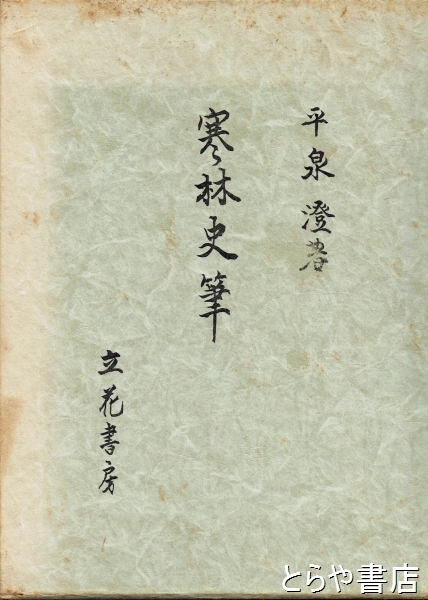 平泉澄著
寒林史筆
立花書房
とらや書店